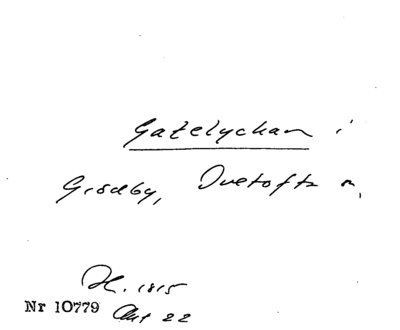 Gatelyckan i
Grödby, Ovetofta n,
H. 1815
Nr 10779 Akt 22